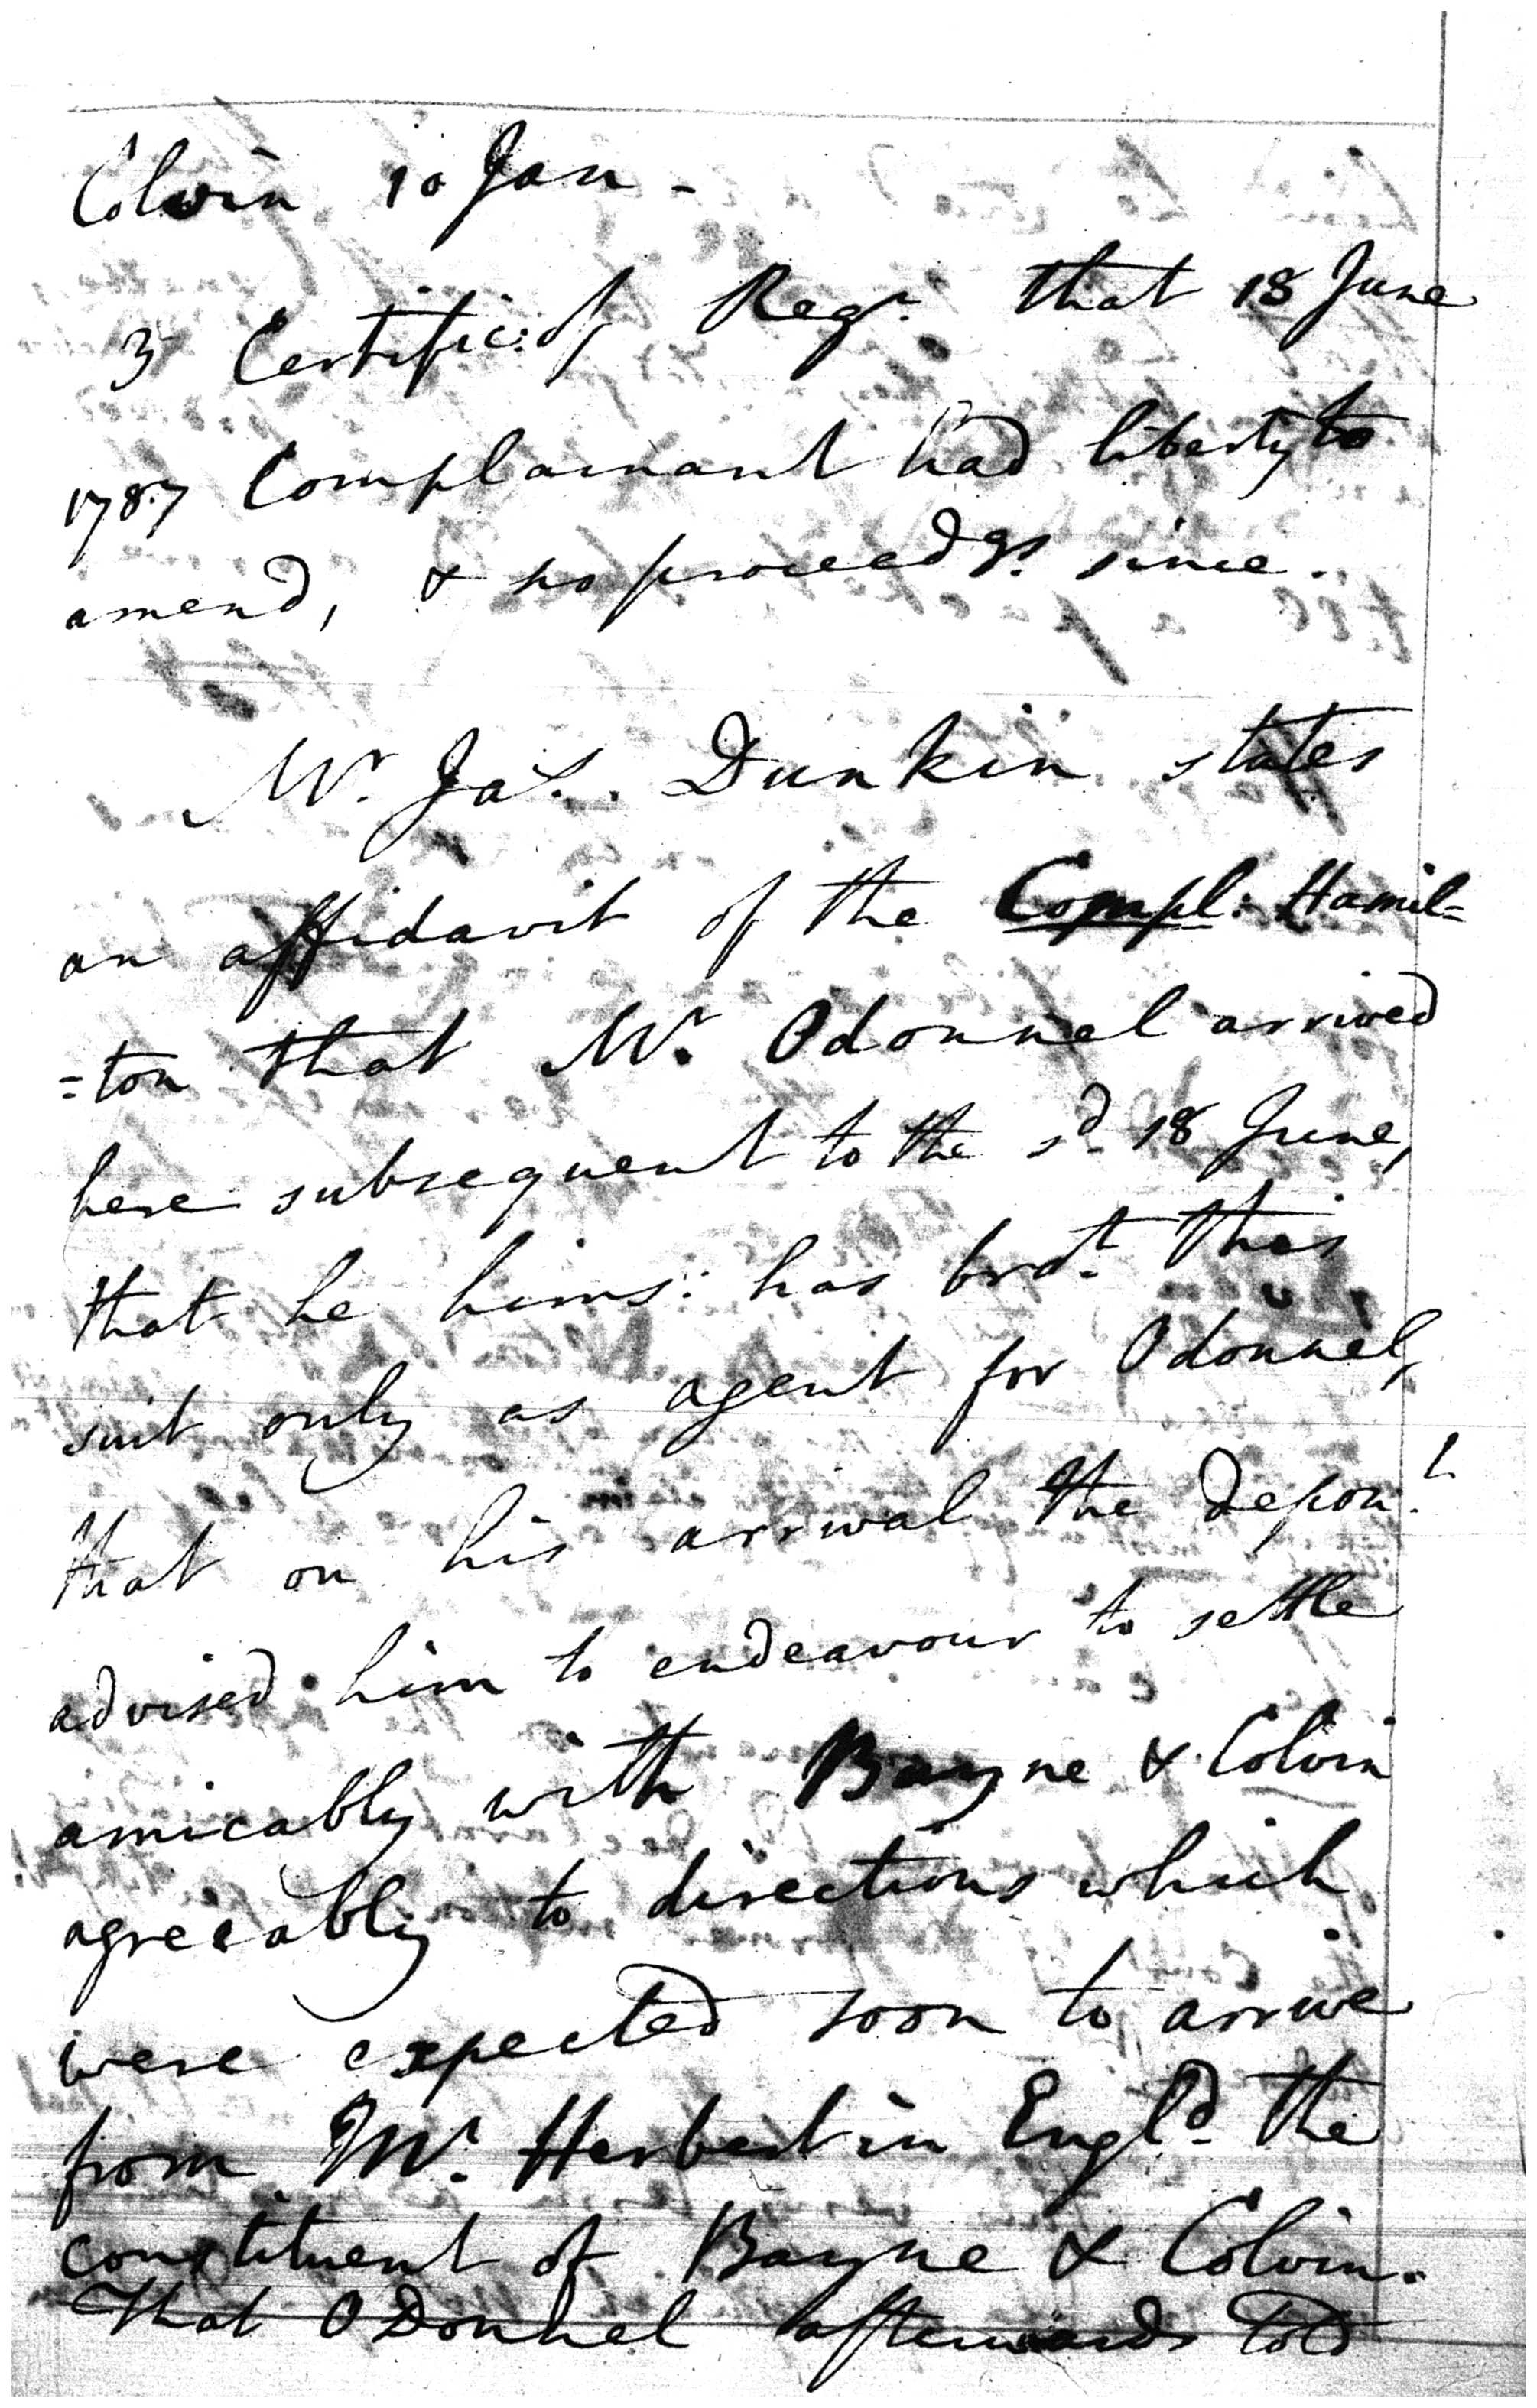 Colvin 10 Jan -
3 Certific: of Regr. that 18 June
1787 Complainant had liberty to
amend, & no proceedgs. since.
Mr. Jas. Dunkin states
an affidavit of the Compl: Hamil=
=ton that Mr. Odonnel arrived
here subsequent to the sd. 18 June,
that he hims: has brot. this
suit only as agent for Odonnel,
that on his arrival the depont.
advised him to endeavour to settle
amicably with Bayne & Colvin
agreeably to directions which
were expected soon to arrive
from Mr. Herbert in Engld. the
constituent of Bayne & Colvin.
That ODonnel afterwards told